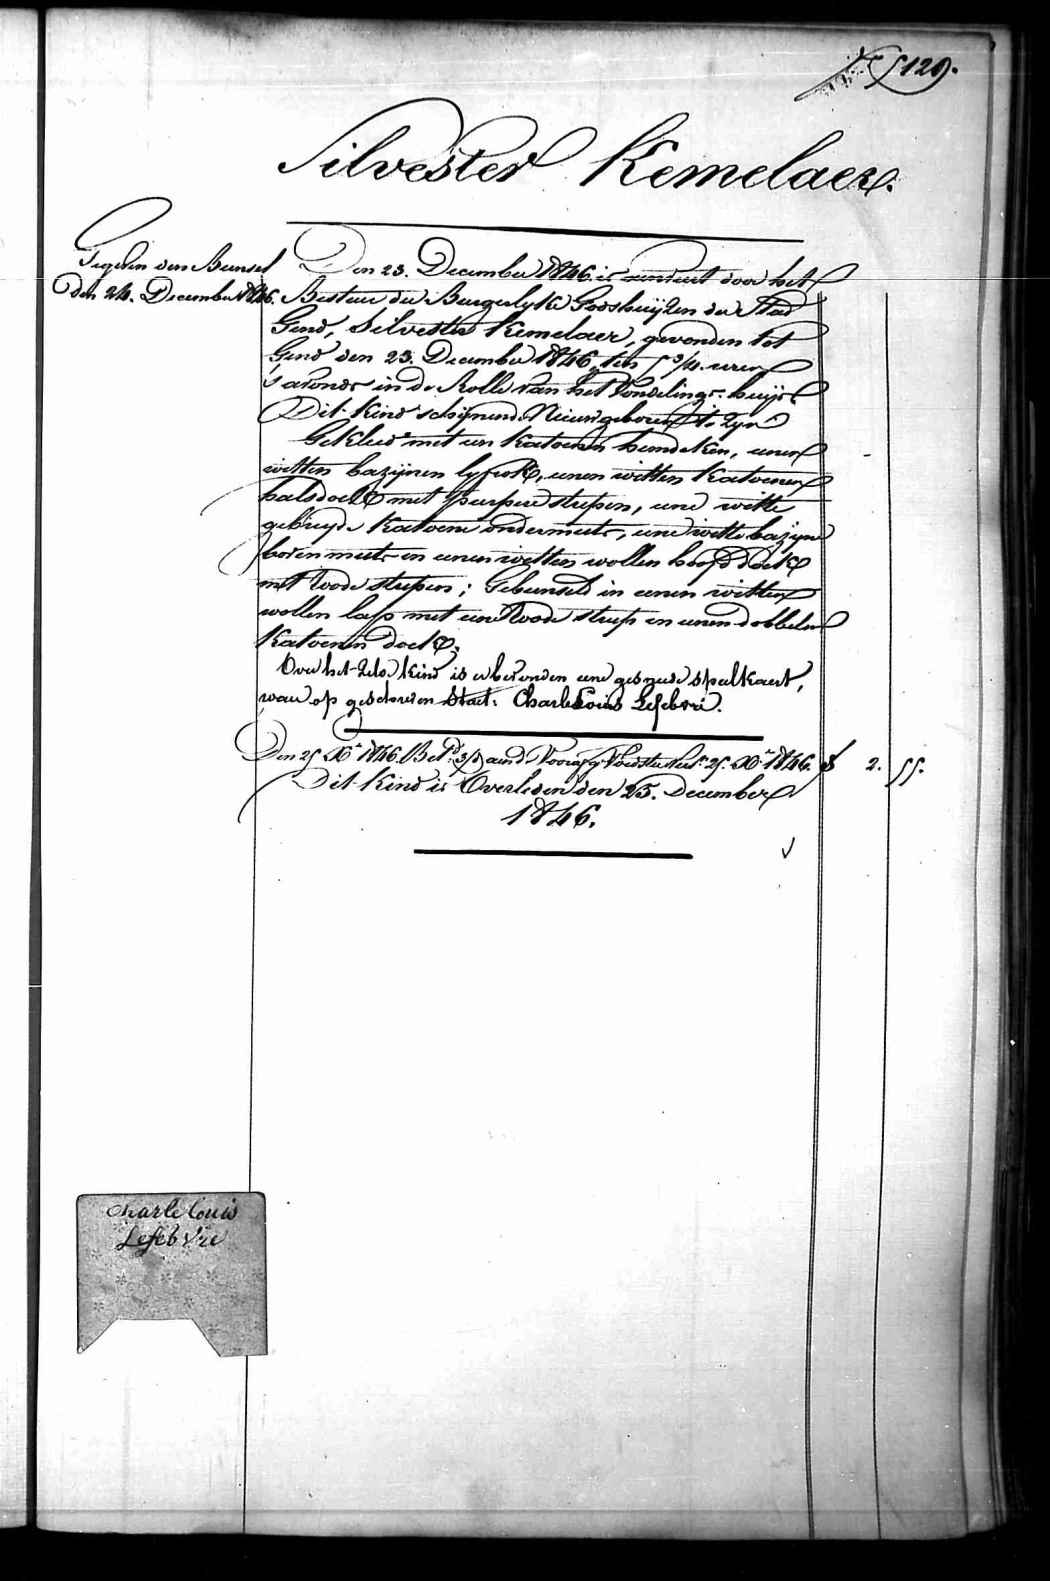 129.
Silvester Kemelaer.
Gegeven den Bunsel
den 24. December 1846.
Den 23. December 1846. is door het
Bestuur der Burgerlyke Godshuijzen der Stad
Gend, Silvester Kemelaer, gevonden tot
Gend den 23. December 1846, ten 5 3/4. uren
's avonds in de Rolle van het Vondelings-huijs.
Dit Kind schijnende Nieuwgeboren te zyn
Gekleed met een katoenen hemdeken, eenen
witten bazijnen lyfrok, eenen witten katoenen
halsdoek met purpere strepen, eene witte
gebreyde katoene ondermuts, eene witte bazyne
bovenmuts en eenen witten wollen hoofddoek
met roode strepen; Gebunseld in eenen witten
wollen lap met eene roode streep en eenen dobbelen
katoenen doek.
Over het zelve kind is er bevonden eene gesnede speelkaert,
waer op geschreven staet: Charle Louis Lefebvre.
Den 25 Xr 1846. Bet. 25. Xr 1846. f 2. 55.
Dit Kind is Overleden den 25. December
1846.
Charle Louis
Lefebvre